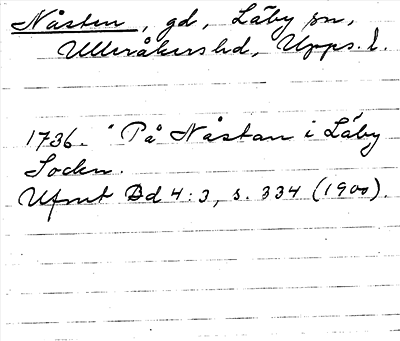 Nåsten, gd, Läby sn,
Ulleråkers hd, Upps. l.
1736. "På Nåstan i Läby
Socken.
Ufmt Bd 4:3, s. 334 (1900).